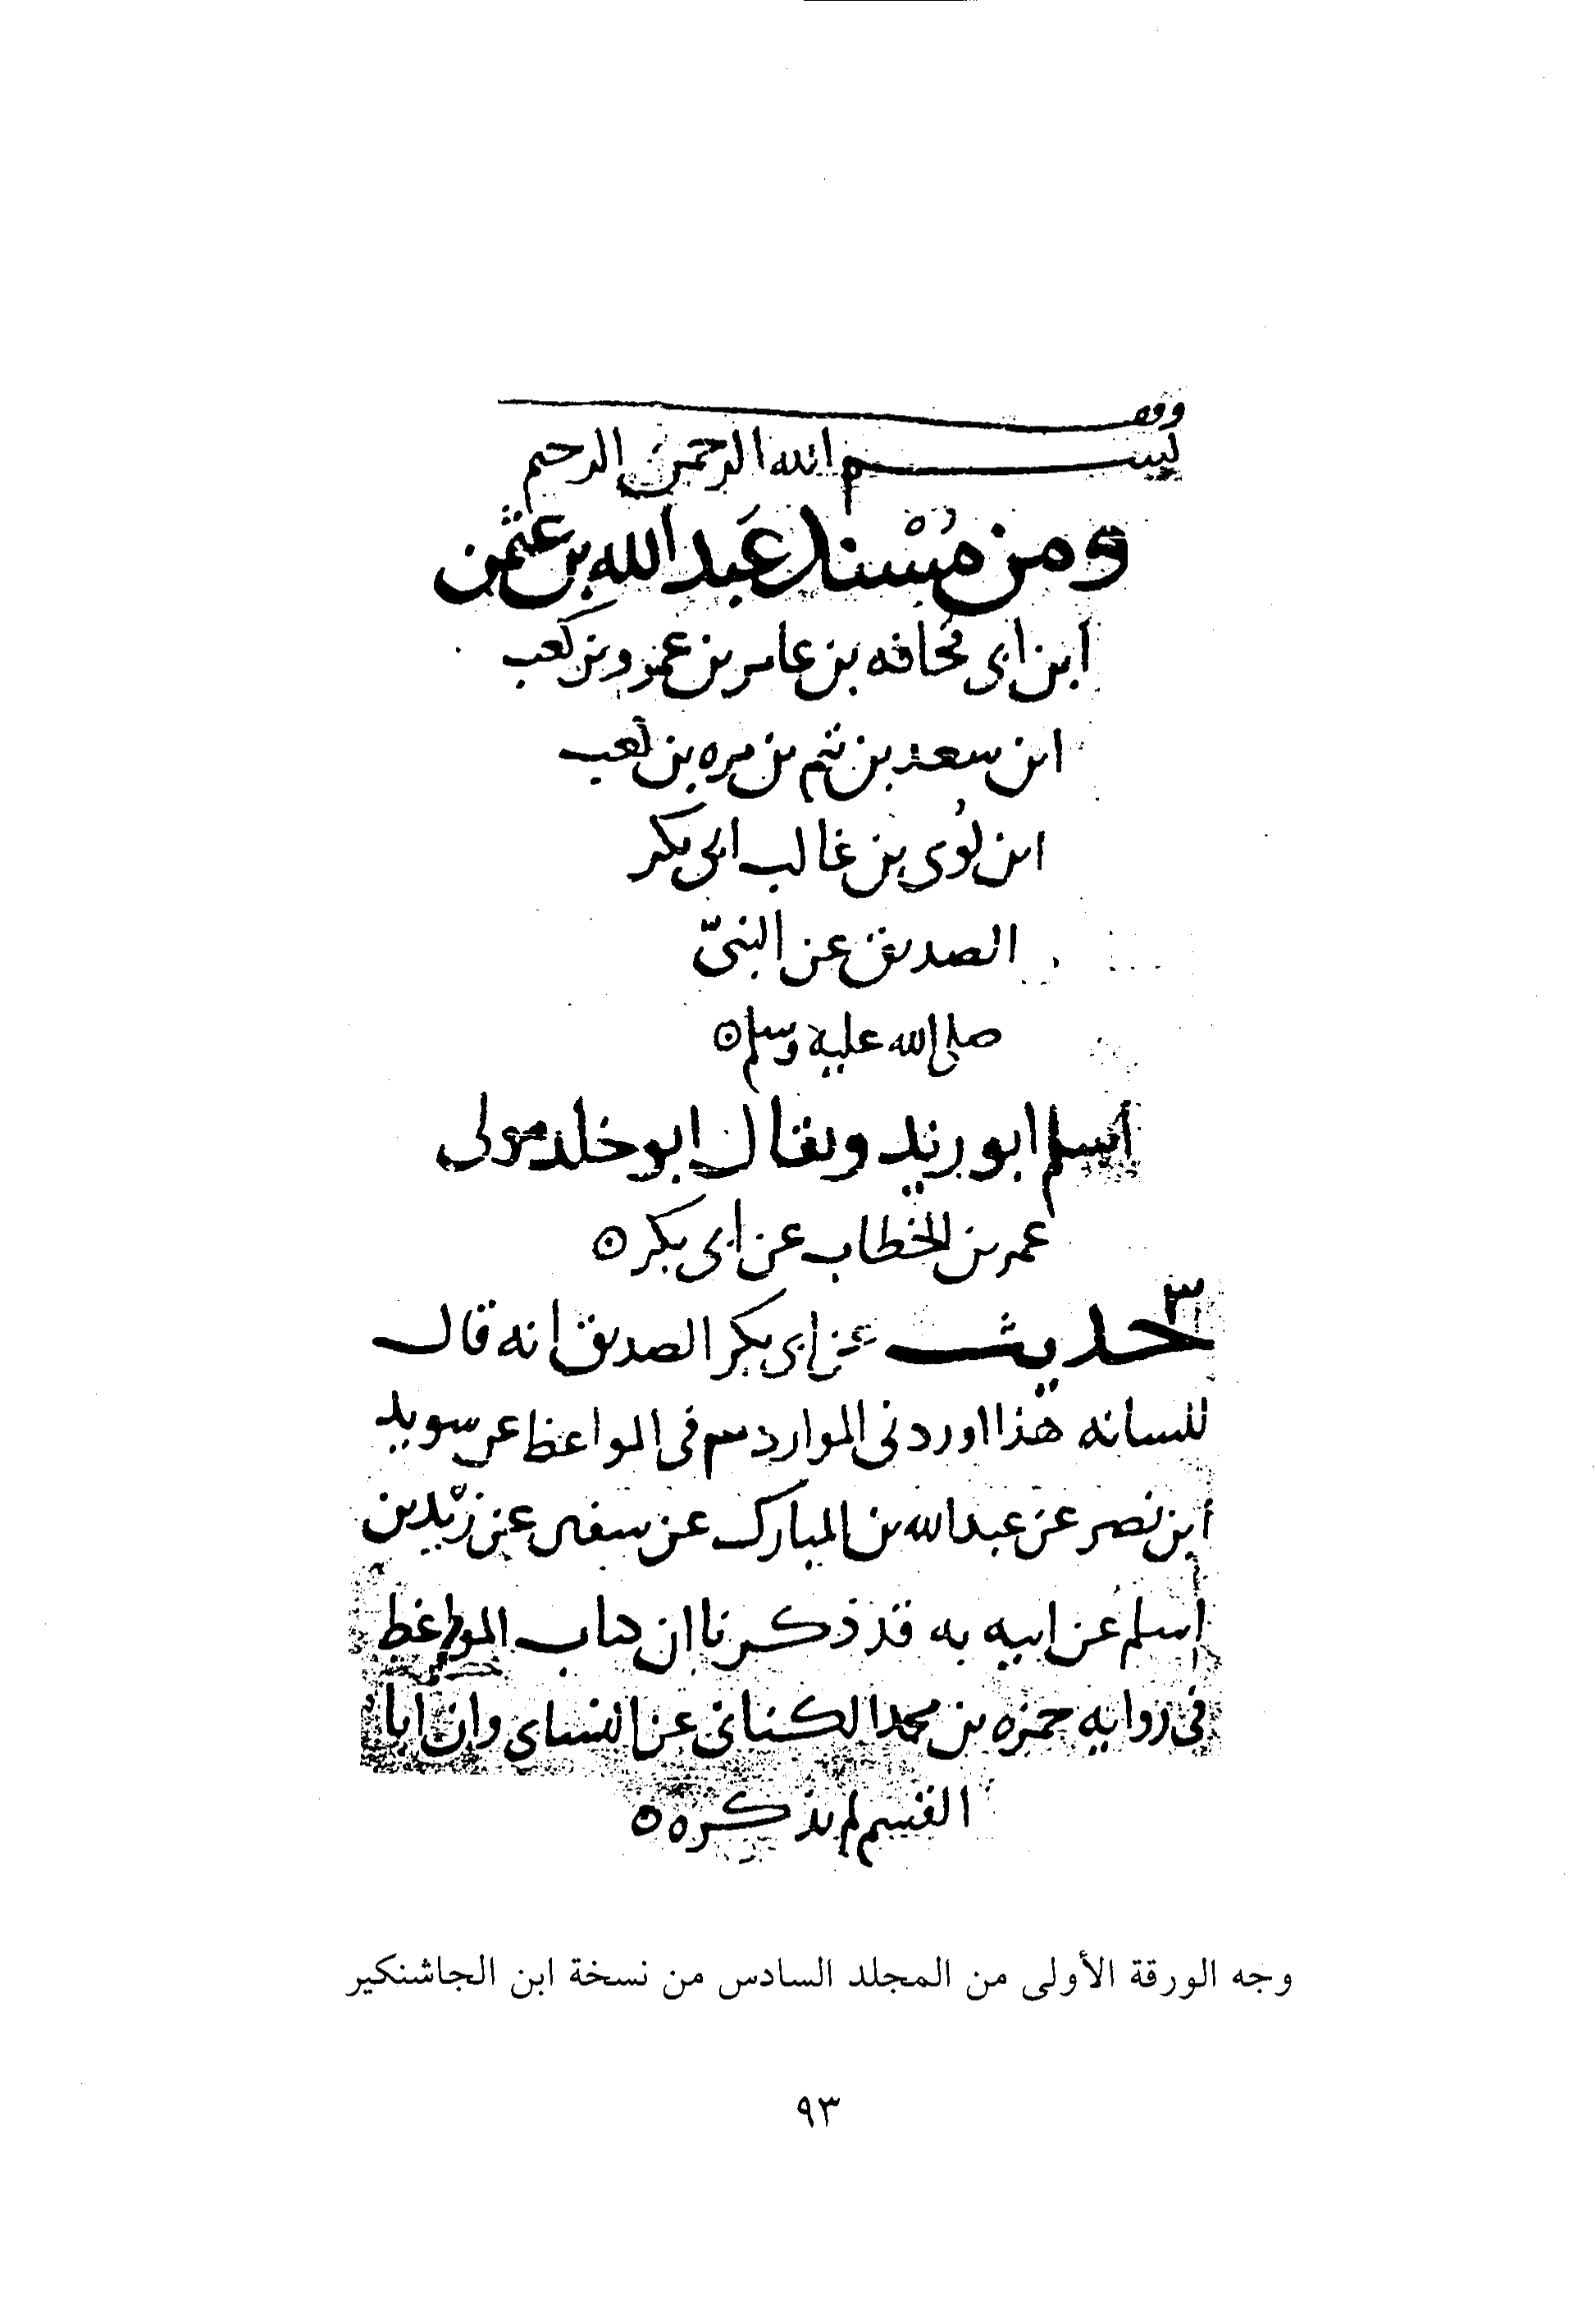 وقف
بسم الله الرحمن الرحيم
ومن مُسْند عَبد الله بن عثمن
ابن ابى قحافه بن عامر بن عمرو بن كعب
ابن سعد بن تيم بن مره بن كعب
ابن لؤى بن غالب ابى بكر
الصديق عن النبىّ
صلى الله عليه وسلم ⊙
اسلم ابو زيد ويقال ابو خلد مولى
عمر بن الخطاب عن ابى بكر ⊙
حديث عن ابى بكر الصديق انه قال
للسانه هذا اوردنى الموارد س فى المواعظ عن سويد
ابن نصر عن عبد الله بن المبارك عن سفين عن زيد بن
اسلم عن ابيه به قد ذكرنا ان كتاب المواعظ
فى روايه حمزه بن محمد الكنانى عن النساى وان ابا
القسم لم يذكره ⊙
وجه الورقة الأولى من المجلد السادس من نسخة ابن الجاشنكير
٩٣